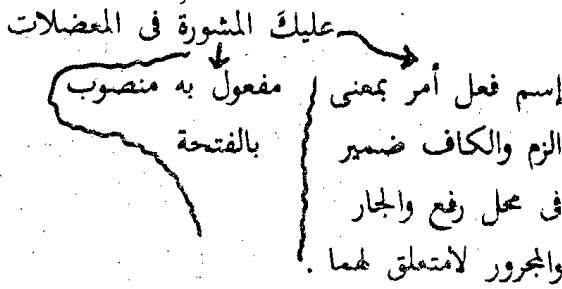 عليكَ المشورة فى المعضلات
إسم فعل أمر بمعنى
الزم والكاف ضمير
فى محل رفع والجار
والمجرور لامتعلق لهما .
مفعول به منصوب
بالفتحة